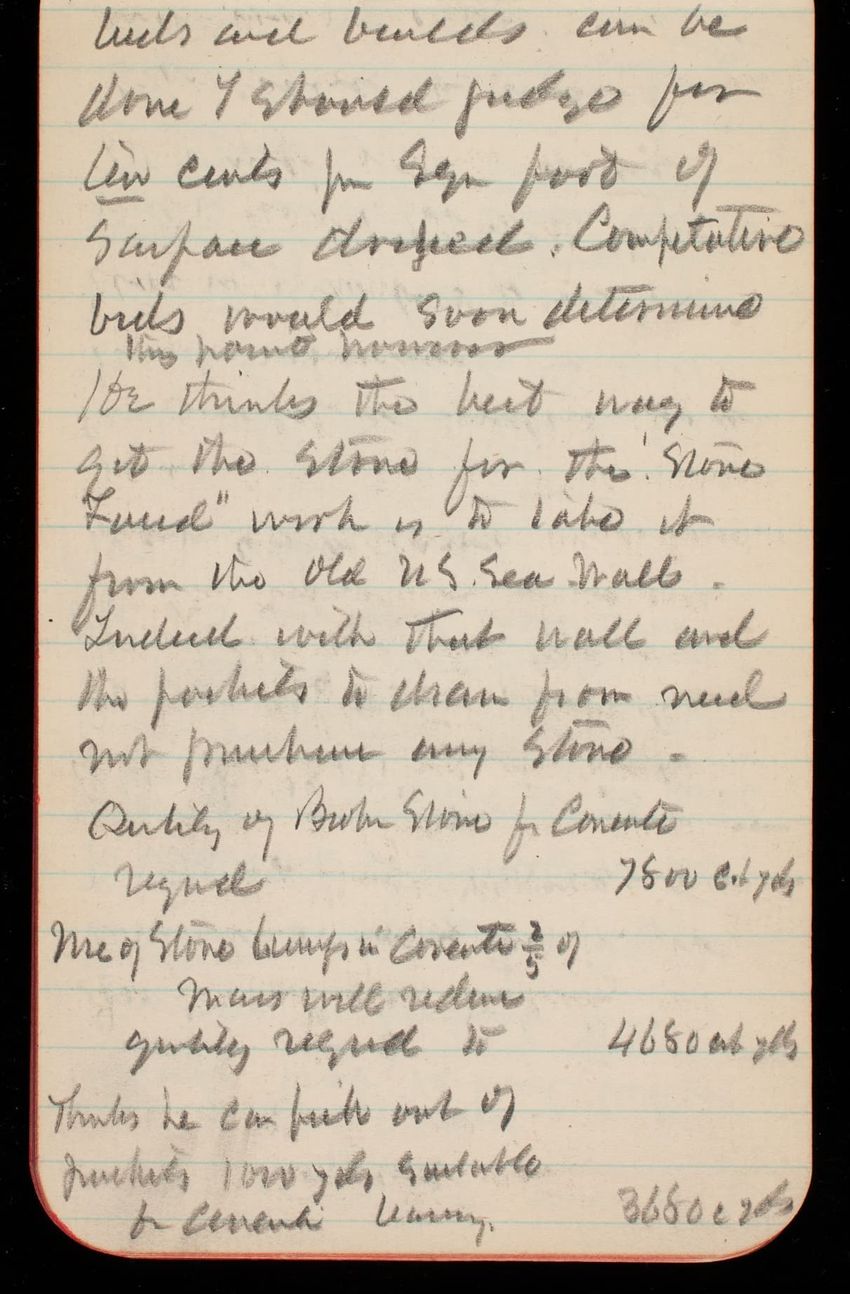 beds and builds can be
done I should judge for
ten cents per Sqr foot of
Surface dressed. Competative
bids would soon determine
this point however
He thinks the best way to
get the stone for the "Stone
Faced" work is to take it
from the Old U S. Sea Wall.
Indeed with that wall and
the pockets to draw from need
not purchase any stone -
Qutity of Brokn Stone for Concrete
reqrd 7800 c.b yds
Use of Stone lumps in Concrete 2/5 of
Mass will reduce
qutity reqrd to 4680 cub yds
Thinks he can pick out of
pockets 1000 yds suitable
for concrete leaving. 3680 c yds